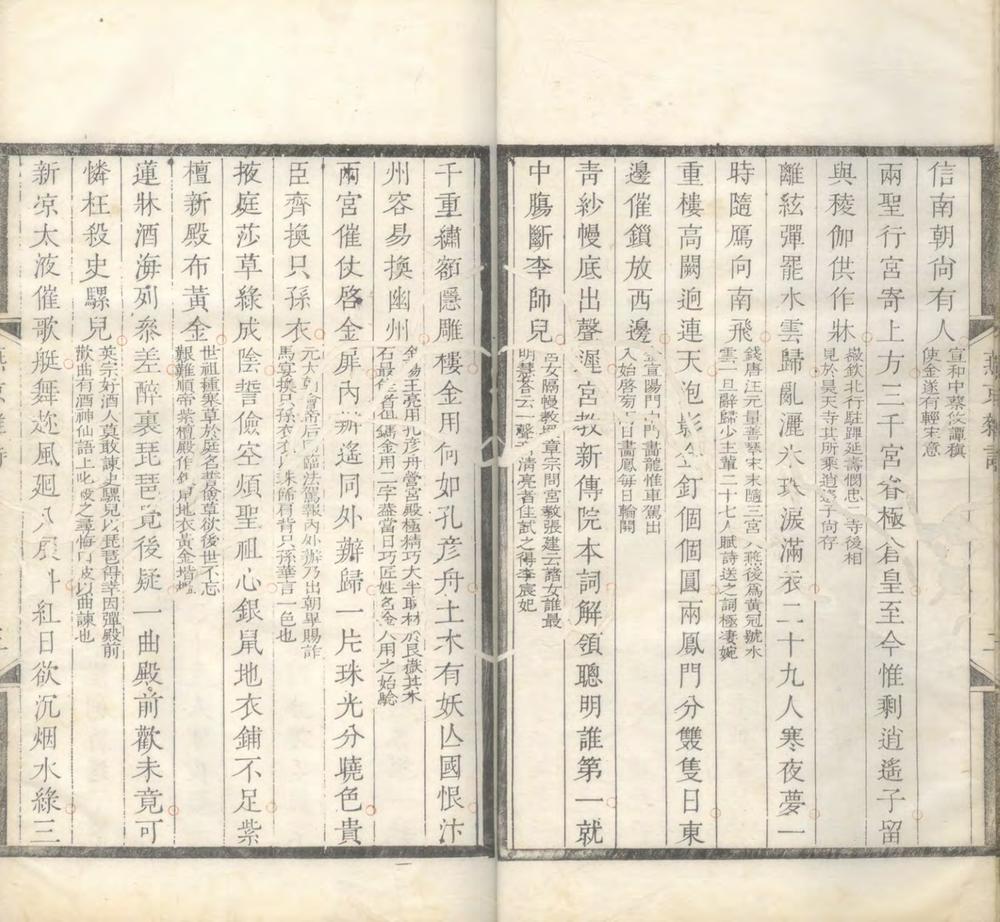 信南朝尚有人宣和中蔡攸譚稹
使金遂有輕宋意
兩聖行宮寄上方三千宮眷極倉皇至今惟剩逍遙子留
與稜伽供作牀徽欽北行駐蹕延壽憫忠二寺後相
見於昊天寺其所乘逍遙子尙存
離絃彈罷水雲歸亂灑氷珠淚滿衣二十九人寒夜夢一
時隨鴈向南飛錢唐汪元量善琴宋末隨三宮入燕後爲黃冠號水
雲一旦辭歸小主輩二十七人賦詩送之詞極凄婉
重樓高闕迥連天泡影金釘個個圓兩鳳門分雙隻日東
邊催鎖放西邊宣陽門中門畫龍惟車駕出
入始啓旁門畫鳳每日輪開
靑紗幔底出聲遲宮教新傳院本詞解領聰明誰第一就
中膓斷李師兒宮女隔幔教章宗問宮教張建云諸女誰最
明慧荅云一聲清亮者佳試之得李宸妃
千重繡額隱雕樓金用何如孔彥舟土木有妖亾國恨汴
州容易換幽州王亮用孔彥舟營宮殿極精巧大半取材於艮嶽其木
石最鐫金用二字葢當日巧匠姓名金人用之始驗
兩宮催仗啓金屏內辦遙同外辦歸一片珠光分曉色貴
臣齊換只孫衣元大朝會帝后臨法駕報內外辦乃出朝畢賜詐
馬宴換只孫衣珠飾肩背只孫華言一色也
掖庭莎草綠成陰誓儉空煩聖祖心銀鼠地衣鋪不足紫
檀新殿布黃金世祖種莎草於庭名誓儉草欲後世不忘
艱難順帝紫檀殿作銀鼠地衣黃金堦墄
蓮牀酒海列叅差醉裏琵琶竟後疑一曲殿前歡未竟可
憐枉殺史騾兒英宗好酒人莫敢諫史騾兒以琵琶得幸因彈殿前
歡曲有酒神仙語上叱殺之尋悔曰彼以曲諫也
新凉太液催歌艇舞趂風廻八展 紅日欲沉烟水綠三